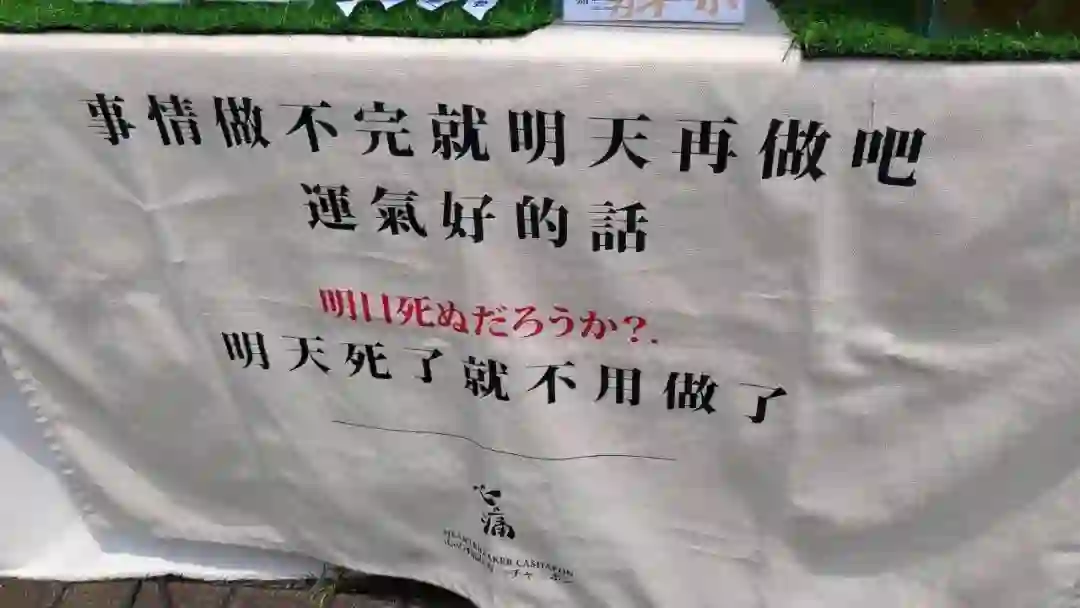 事情做不完就明天再做吧
運氣好的話
明日死ぬだろうか?.
明天死了就不用做了
心痛
HEARTBREAKER CASHAPON